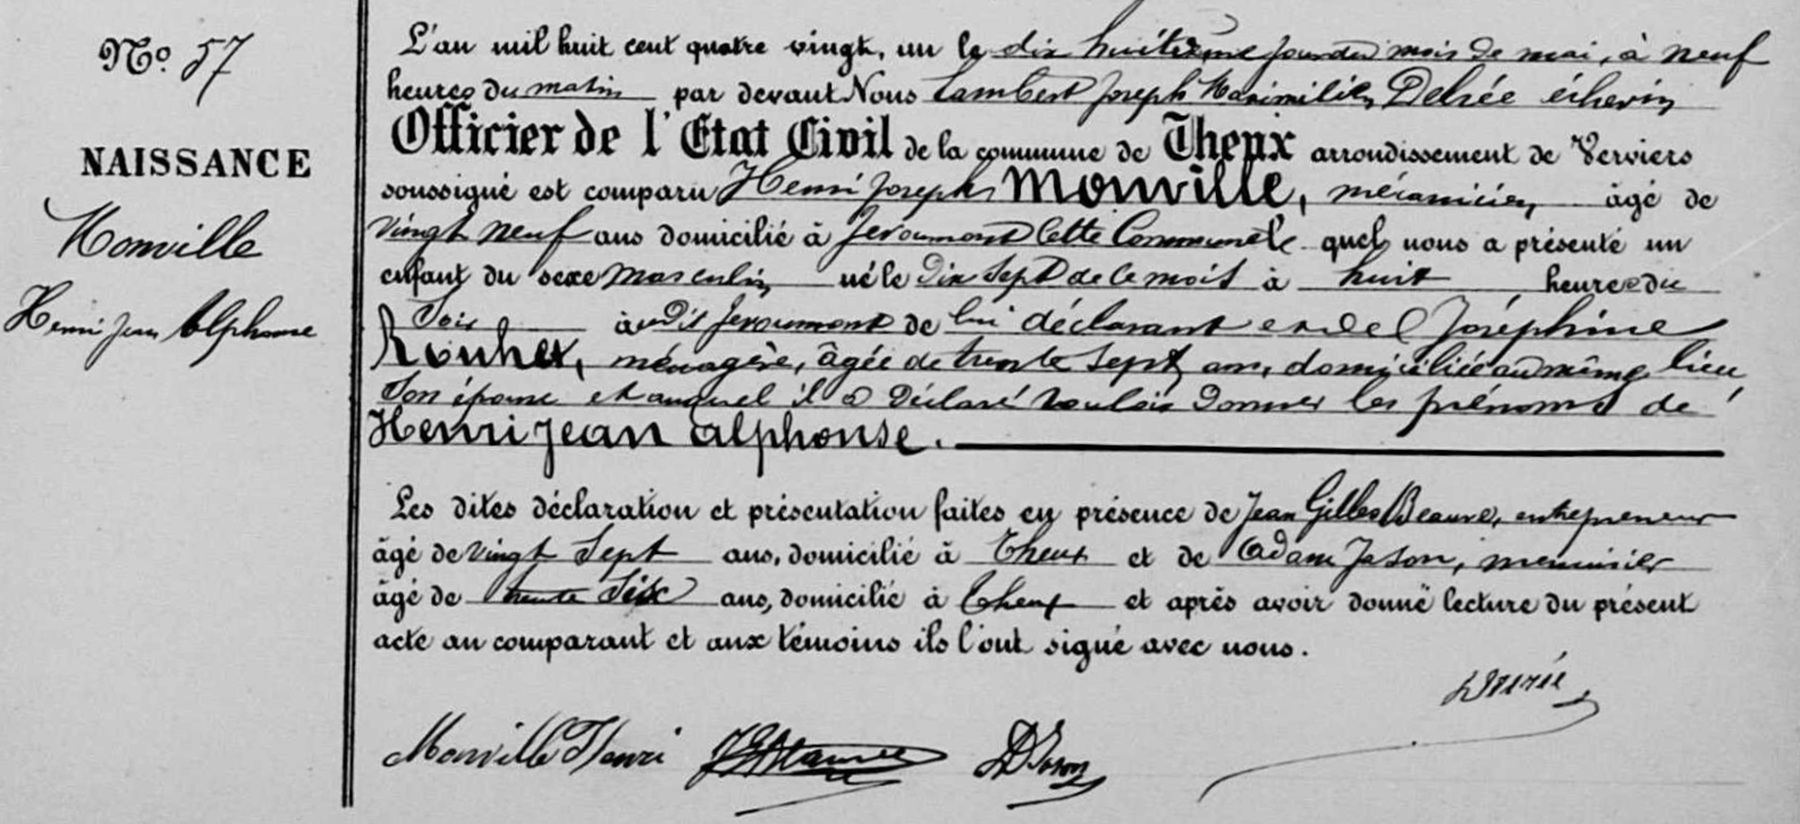 No 57
NAISSANCE
Monville
Henri Jean Alphonse
L'an mil huit cent quatre vingt, un le dix huitième jour du mois de mai, à neuf
heures du matin par devant Nous Lambert Joseph Maximilien Delrée échevin
Officier de l'Etat Civil de la commune de Theux arrondissement de Verviers
soussigné est comparu Henri Joseph Monville, mécanicien, âgé de
vingt neuf ans domicilié à Jevoumont Cette Commune le quel nous a présenté un
enfant du sexe masculin né le dix sept de ce mois à huit heures du
Soir à udit Jevoumont de lui déclarant et de Joséphine
Rouhet, ménagère, âgée de trente sept ans, domiciliée au même lieu
Son épouse et auquel il a déclaré vouloir donner les prénoms de
Henri Jean alphonse.
Les dites déclaration et présentation faites en présence de Jean Gilles Beauve, entrepreneur
âgé de vingt Sept ans, domicilié à Theux et de Adam Jason, menuisier
âgé de trente Six ans, domicilié à Theux et après avoir donné lecture du présent
acte au comparant et aux témoins ils l'ont signé avec nous.
Delrée
Monville Henri ADJason